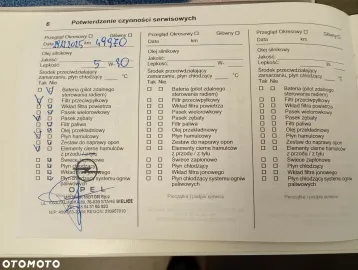 6 Potwierdzenie czynności serwisowych
Przegląd Okresowy ☐ Główny ☐
Data km 49970
Olej silnikowy
Jakość:
Lepkość: 5 W- 30
Środek przeciwdziałający
zamarzaniu, płyn chłodzący °C
Tak Nie
Bateria (pilot zdalnego
sterowania radiem)
Filtr przeciwpyłowy
Wkład filtra powietrza
Pasek wielorowkowy
Pasek zębaty
Filtr paliwa
Olej przekładniowy
Płyn hamulcowy
Zestaw do naprawy opon
Elementy cierne hamulców
z przodu / z tyłu
Świece zapłonowe
Płyn chłodzący
Wkład filtra
Płyn chłodzący systemu ogniw
paliwowych
OPEL
Przegląd Okresowy ☐ Główny ☐
Data km
Olej silnikowy
Jakość:
Lepkość: W-
Środek przeciwdziałający
zamarzaniu, płyn chłodzący °C
Tak Nie
Bateria (pilot zdalnego
sterowania radiem)
Filtr przeciwpyłowy
Wkład filtra powietrza
Pasek wielorowkowy
Pasek zębaty
Filtr paliwa
Olej przekładniowy
Płyn hamulcowy
Zestaw do naprawy opon
Elementy cierne hamulców
z przodu / z tyłu
Świece zapłonowe
Płyn chłodzący
Wkład filtra jonowego
Płyn chłodzący systemu ogniw
paliwowych
Pieczątka i podpis serwisu
Przegląd Okresowy ☐ Główny ☐
Data km
Olej silnikowy
Jakość:
Lepkość: W-
Środek przeciwdziałający
zamarzaniu, płyn chłodzący °C
Tak Nie
Bateria (pilot zdalnego
sterowania radiem)
Filtr przeciwpyłowy
Wkład filtra powietrza
Pasek wielorowkowy
Pasek zębaty
Filtr paliwa
Olej przekładniowy
Płyn hamulcowy
Zestaw do naprawy opon
Elementy cierne hamulców
z przodu / z tyłu
Świece zapłonowe
Płyn chłodzący
Wkład filtra jonowego
Płyn chłodzący systemu ogniw
paliwowych
Pieczątka i podpis serwisu
OTOMOTO